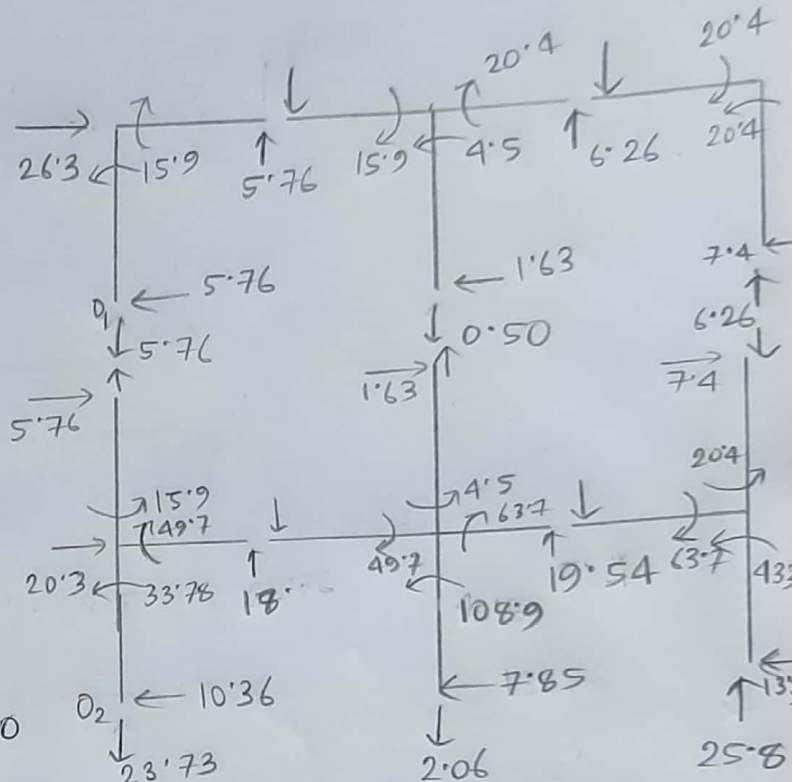 20.4
20.4
26.3 15.9 5.76 15.9 4.5 6.26 20.4
O1 5.76 1.63 7.4
5.76 0.50 6.26
5.76 1.63 7.4
15.9 4.5 20.4
49.7 63.7
20.3 33.78 18 49.7 108.9 19.54 63.7
O2 10.36 7.85
23.73 2.06 25.8